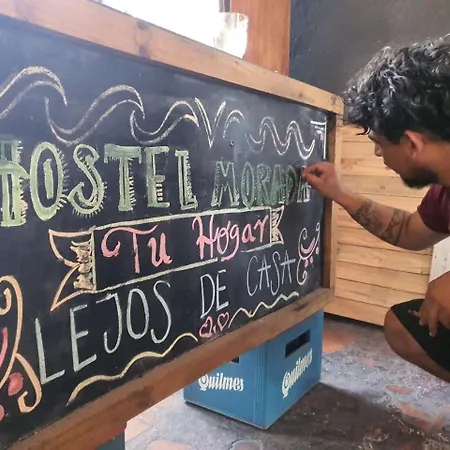 HOSTEL MORADA
Tu Hogar
LEJOS DE CASA
Quilmes
Quilmes